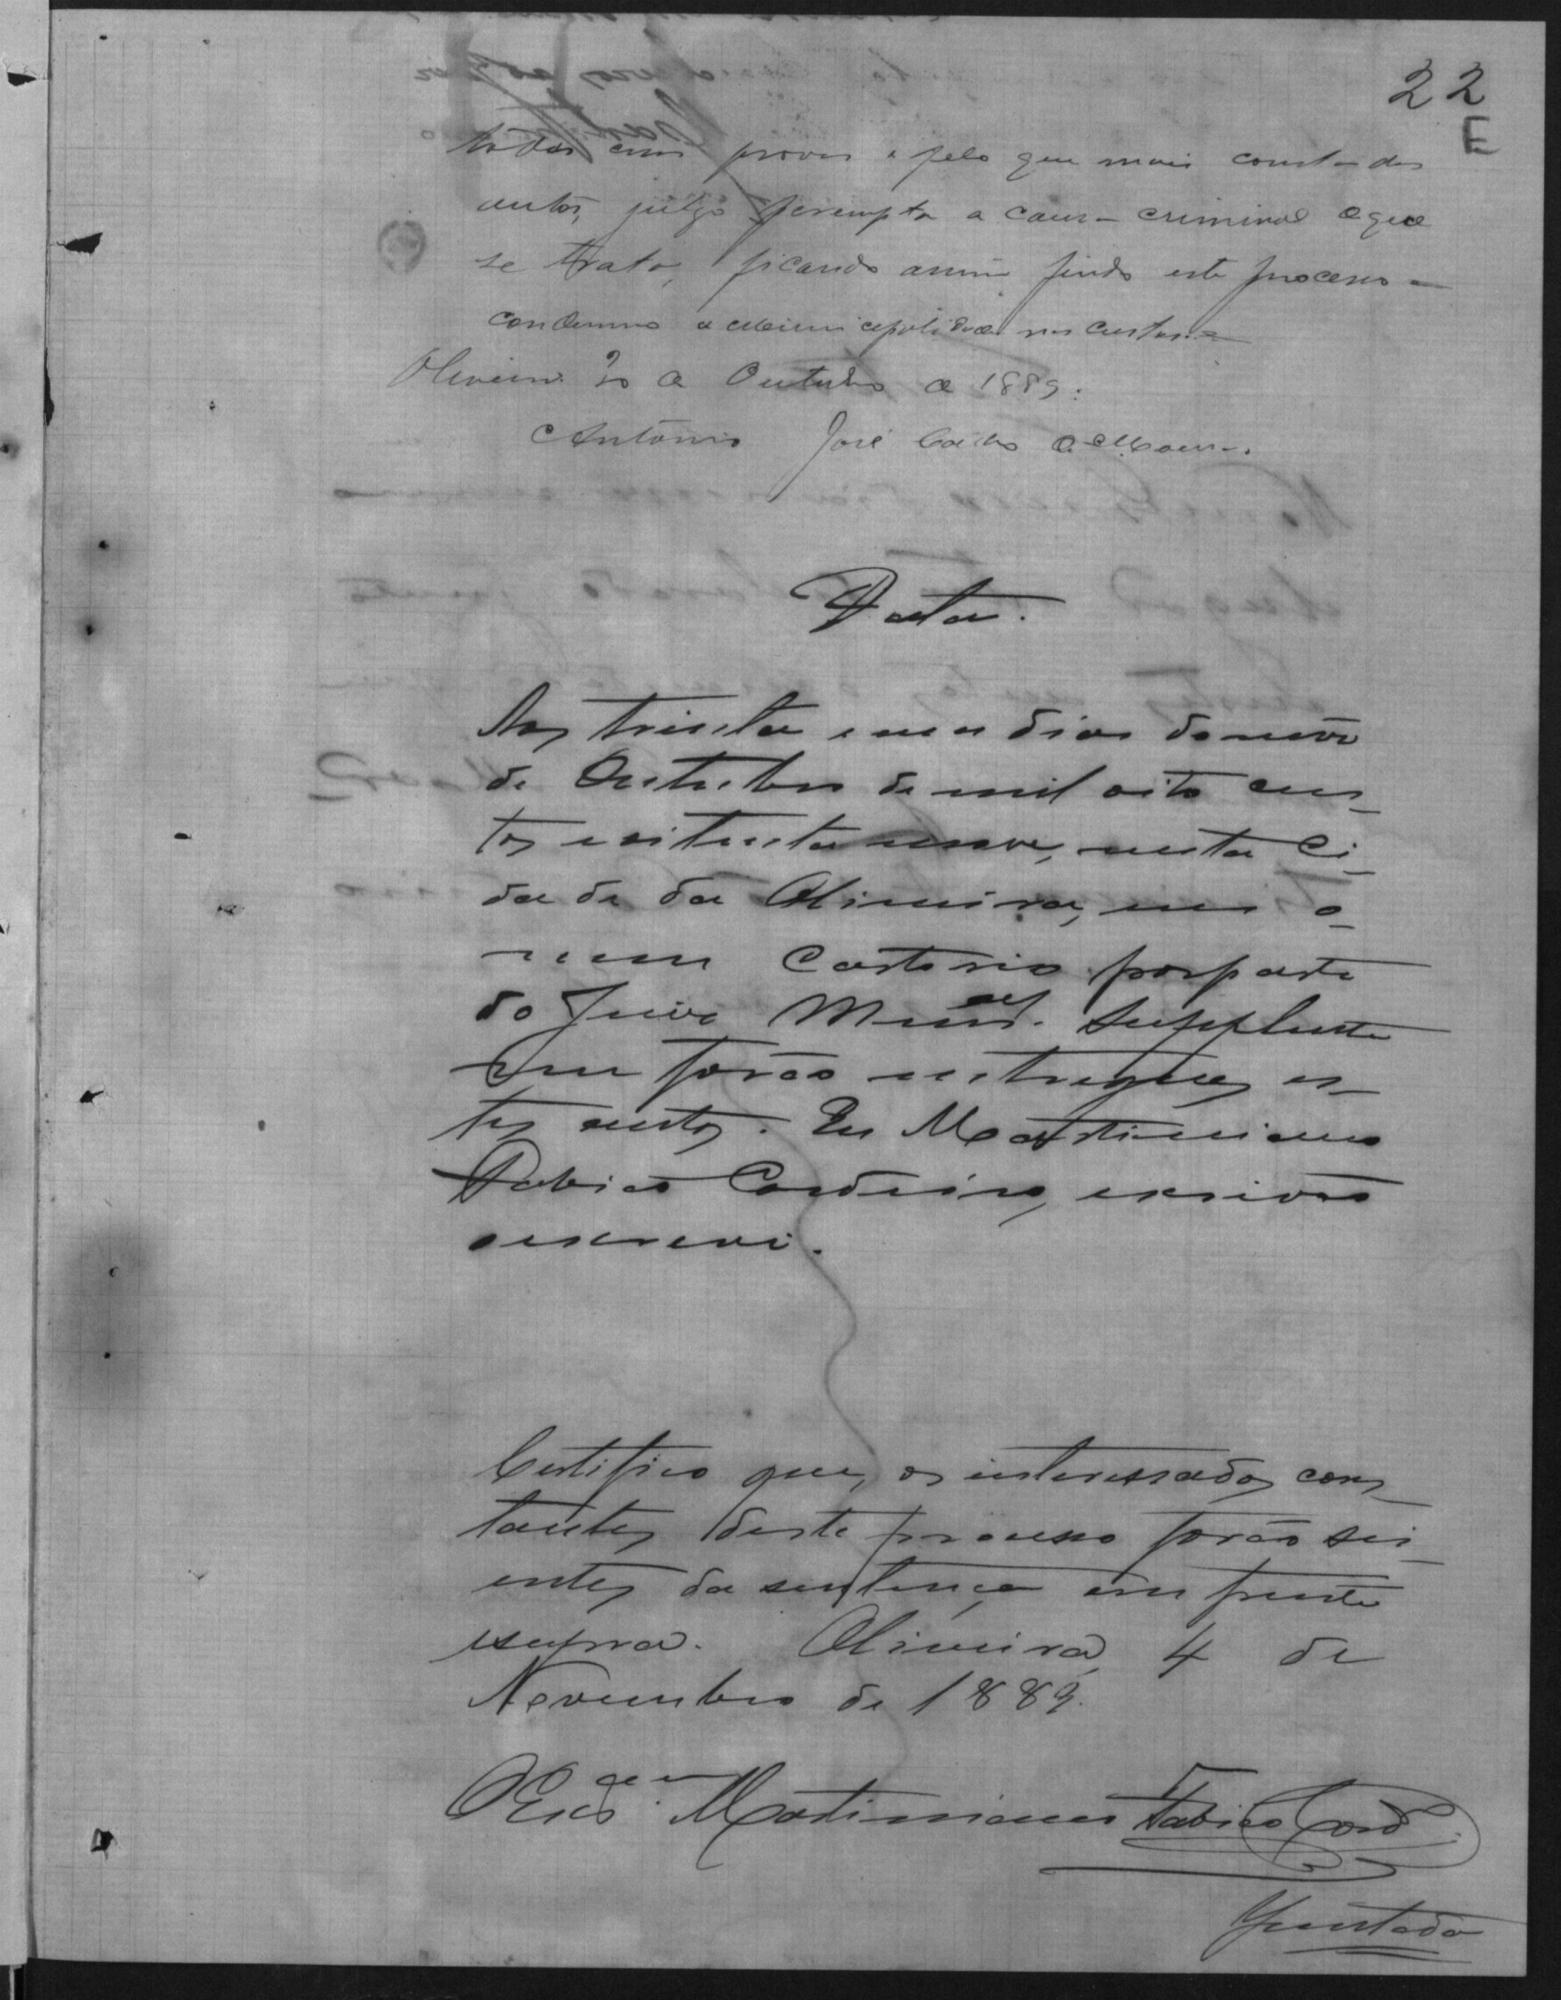 22
E
todas com provas e pelo que mais consta dos
autos, julgo perempta a causa criminal de que
se trata, ficando assim findo este processo e
condemno a Municipalidade nas custas.
Oliveira 30 de Outubro de 1889.
Antonio José Coelho de Moura.
Data.
Aos trinta e um dias do mez
de Outubro de mil oito cen-
tos e oitenta e nove, nesta Ci-
dade da Oliveira, em o
meu Cartorio por parte
do Juiz Munal. Supplente
me forão entregues es-
tes autos. Eu Martiniano
Fabião Cordeiro, escrivão
o escrevi.
Certifico que, os interessados cons-
tantes deste processo forão sci-
entes da sentença em frente
e supra. Oliveira, 4 de
Novembro de 1889.
O Escam. Martiniano Fabião Cord.
Juntada